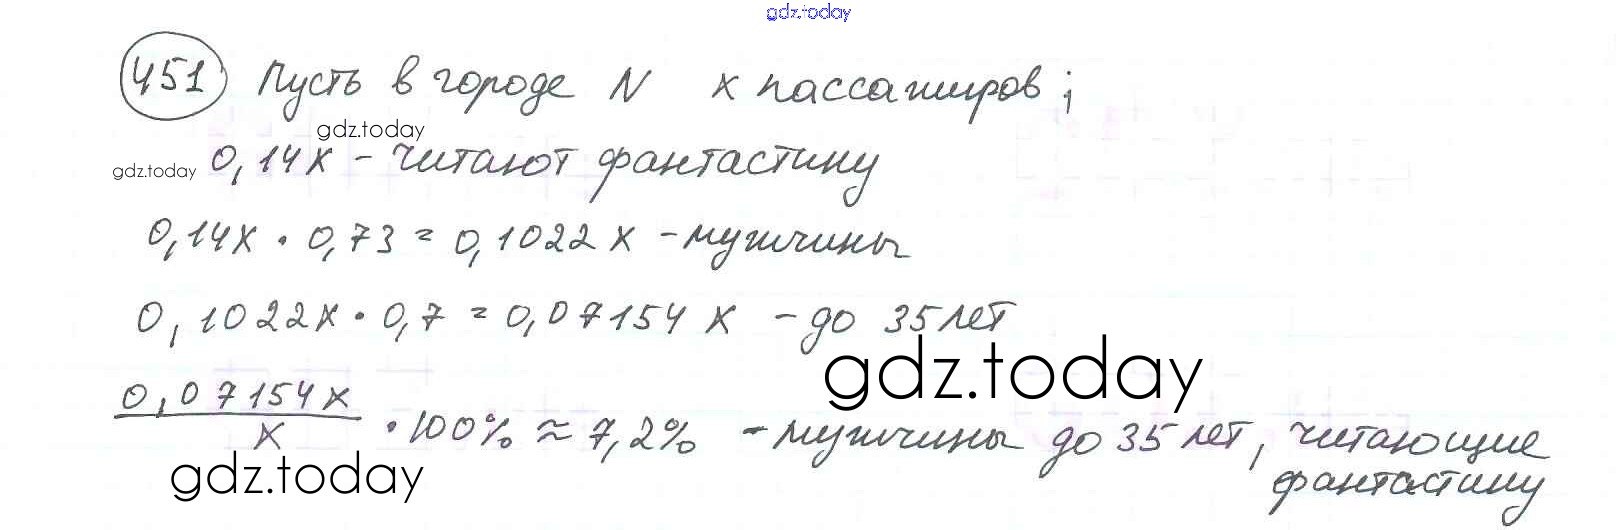 gdz.today
451 Пусть в городе N x пассажиров;
gdz.today
gdz.today 0,14x - читают фантастику
0,14x · 0,73 = 0,1022x - мужчины
0,1022x · 0,7 = 0,07154x - до 35 лет
gdz.today
0,07154x / x · 100% ≈ 7,2% - мужчины до 35 лет, читающие
фантастику
gdz.today